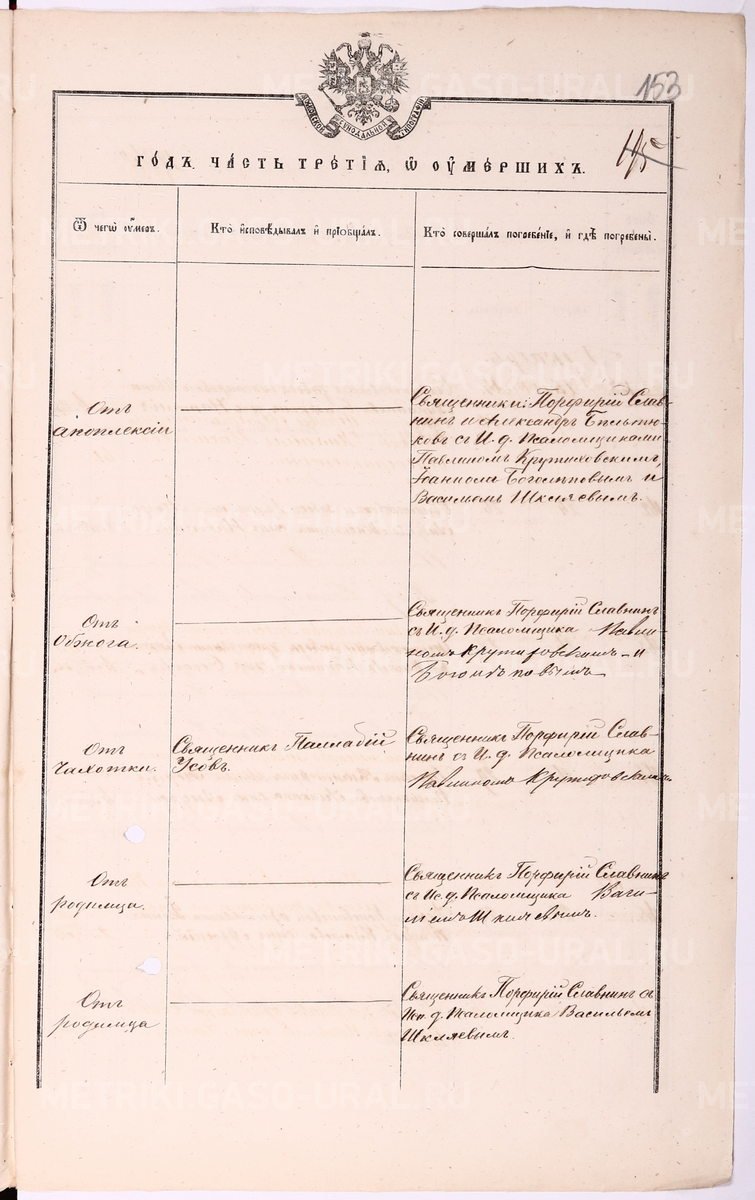 153
МОСКОВСКОЙ СѴНОДАЛЬНОЙ ТИПОГРАФІИ
ГОДЪ. ЧАСТЬ ТРЕТІЯ, Ѡ ОУМЕРШИХЪ.
Ѿ чегѡ оумеръ.
Кто исповѣдывалъ и прїобщалъ.
Кто совершалъ погребенїе, и гдѣ погребены.
Отъ
апоплексіи
Священники: Порфирій Слав-
нинъ и Александръ
ковъ съ И. д. Псаломщиками
Павлиномъ Крутиховскимъ,
Іоанномъ Боголѣповымъ и
Васильемъ Шкляевымъ.
Отъ
Священникъ Порфирій Славнинъ
съ И. д. Псаломщика Павли-
номъ Крутиховскимъ и
Боголѣповымъ
Отъ
Чахотки.
Священникъ Палладій
Усовъ.
Священникъ Порфирій Слав-
нинъ съ И. д. Псаломщика
Павлиномъ Крутиховскимъ
Отъ
родимца.
Священникъ Порфирій Славнинъ
съ Ис. д. Псаломщика Васи-
лiемъ Шкляевымъ.
Отъ
родимца
Священникъ Порфирій Славнинъ съ
Исп. д. Псаломщика Васильемъ
Шкляевымъ.
METRIKI.GASO-URAL.RU